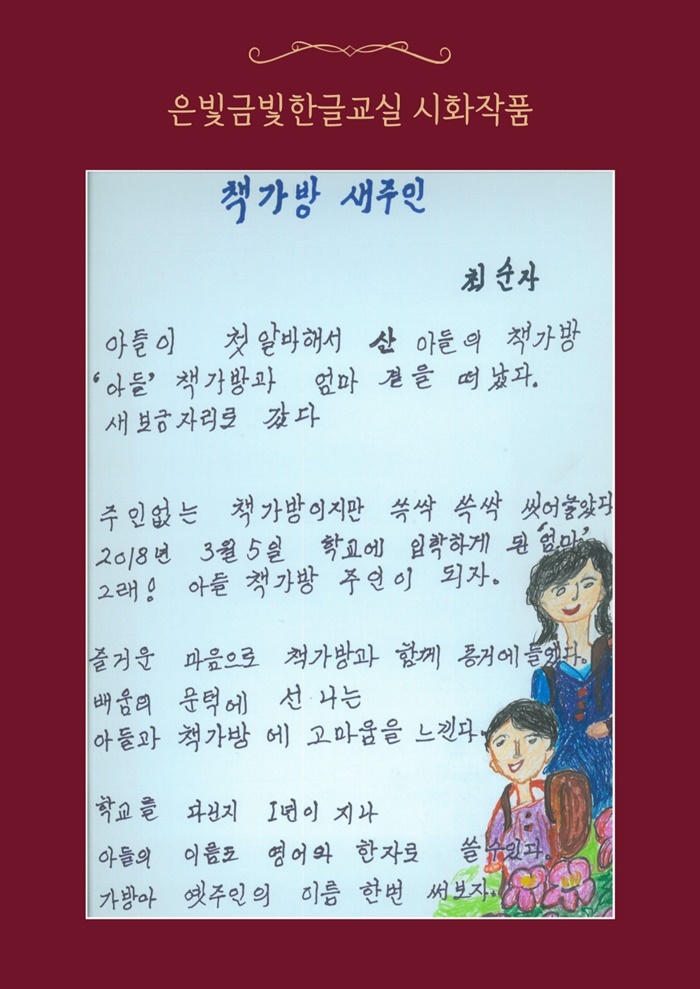 은빛금빛한글교실 시화작품
책가방 새주인
최순자
아들이 첫 알바해서 산 아들의 책가방
'아들' 책가방과 엄마 곁을 떠났다.
새보금자리로 갔다
주인없는 책가방이지만 쓱싹 쓱싹 씻어놓았다
2018년 3월 5일 학교에 입학하게 된 '엄마'
그래! 아들 책가방 주인이 되자.
즐거운 마음으로 책가방과 함께 동거에 들었다.
배움의 문턱에 선 나는
아들과 책가방 에 고마움을 느낀다.
학교를 다닌지 1년이 지나
아들의 이름도 영어와 한자로 쓸 수있다.
가방아 옛주인의 이름 한번 써보자.